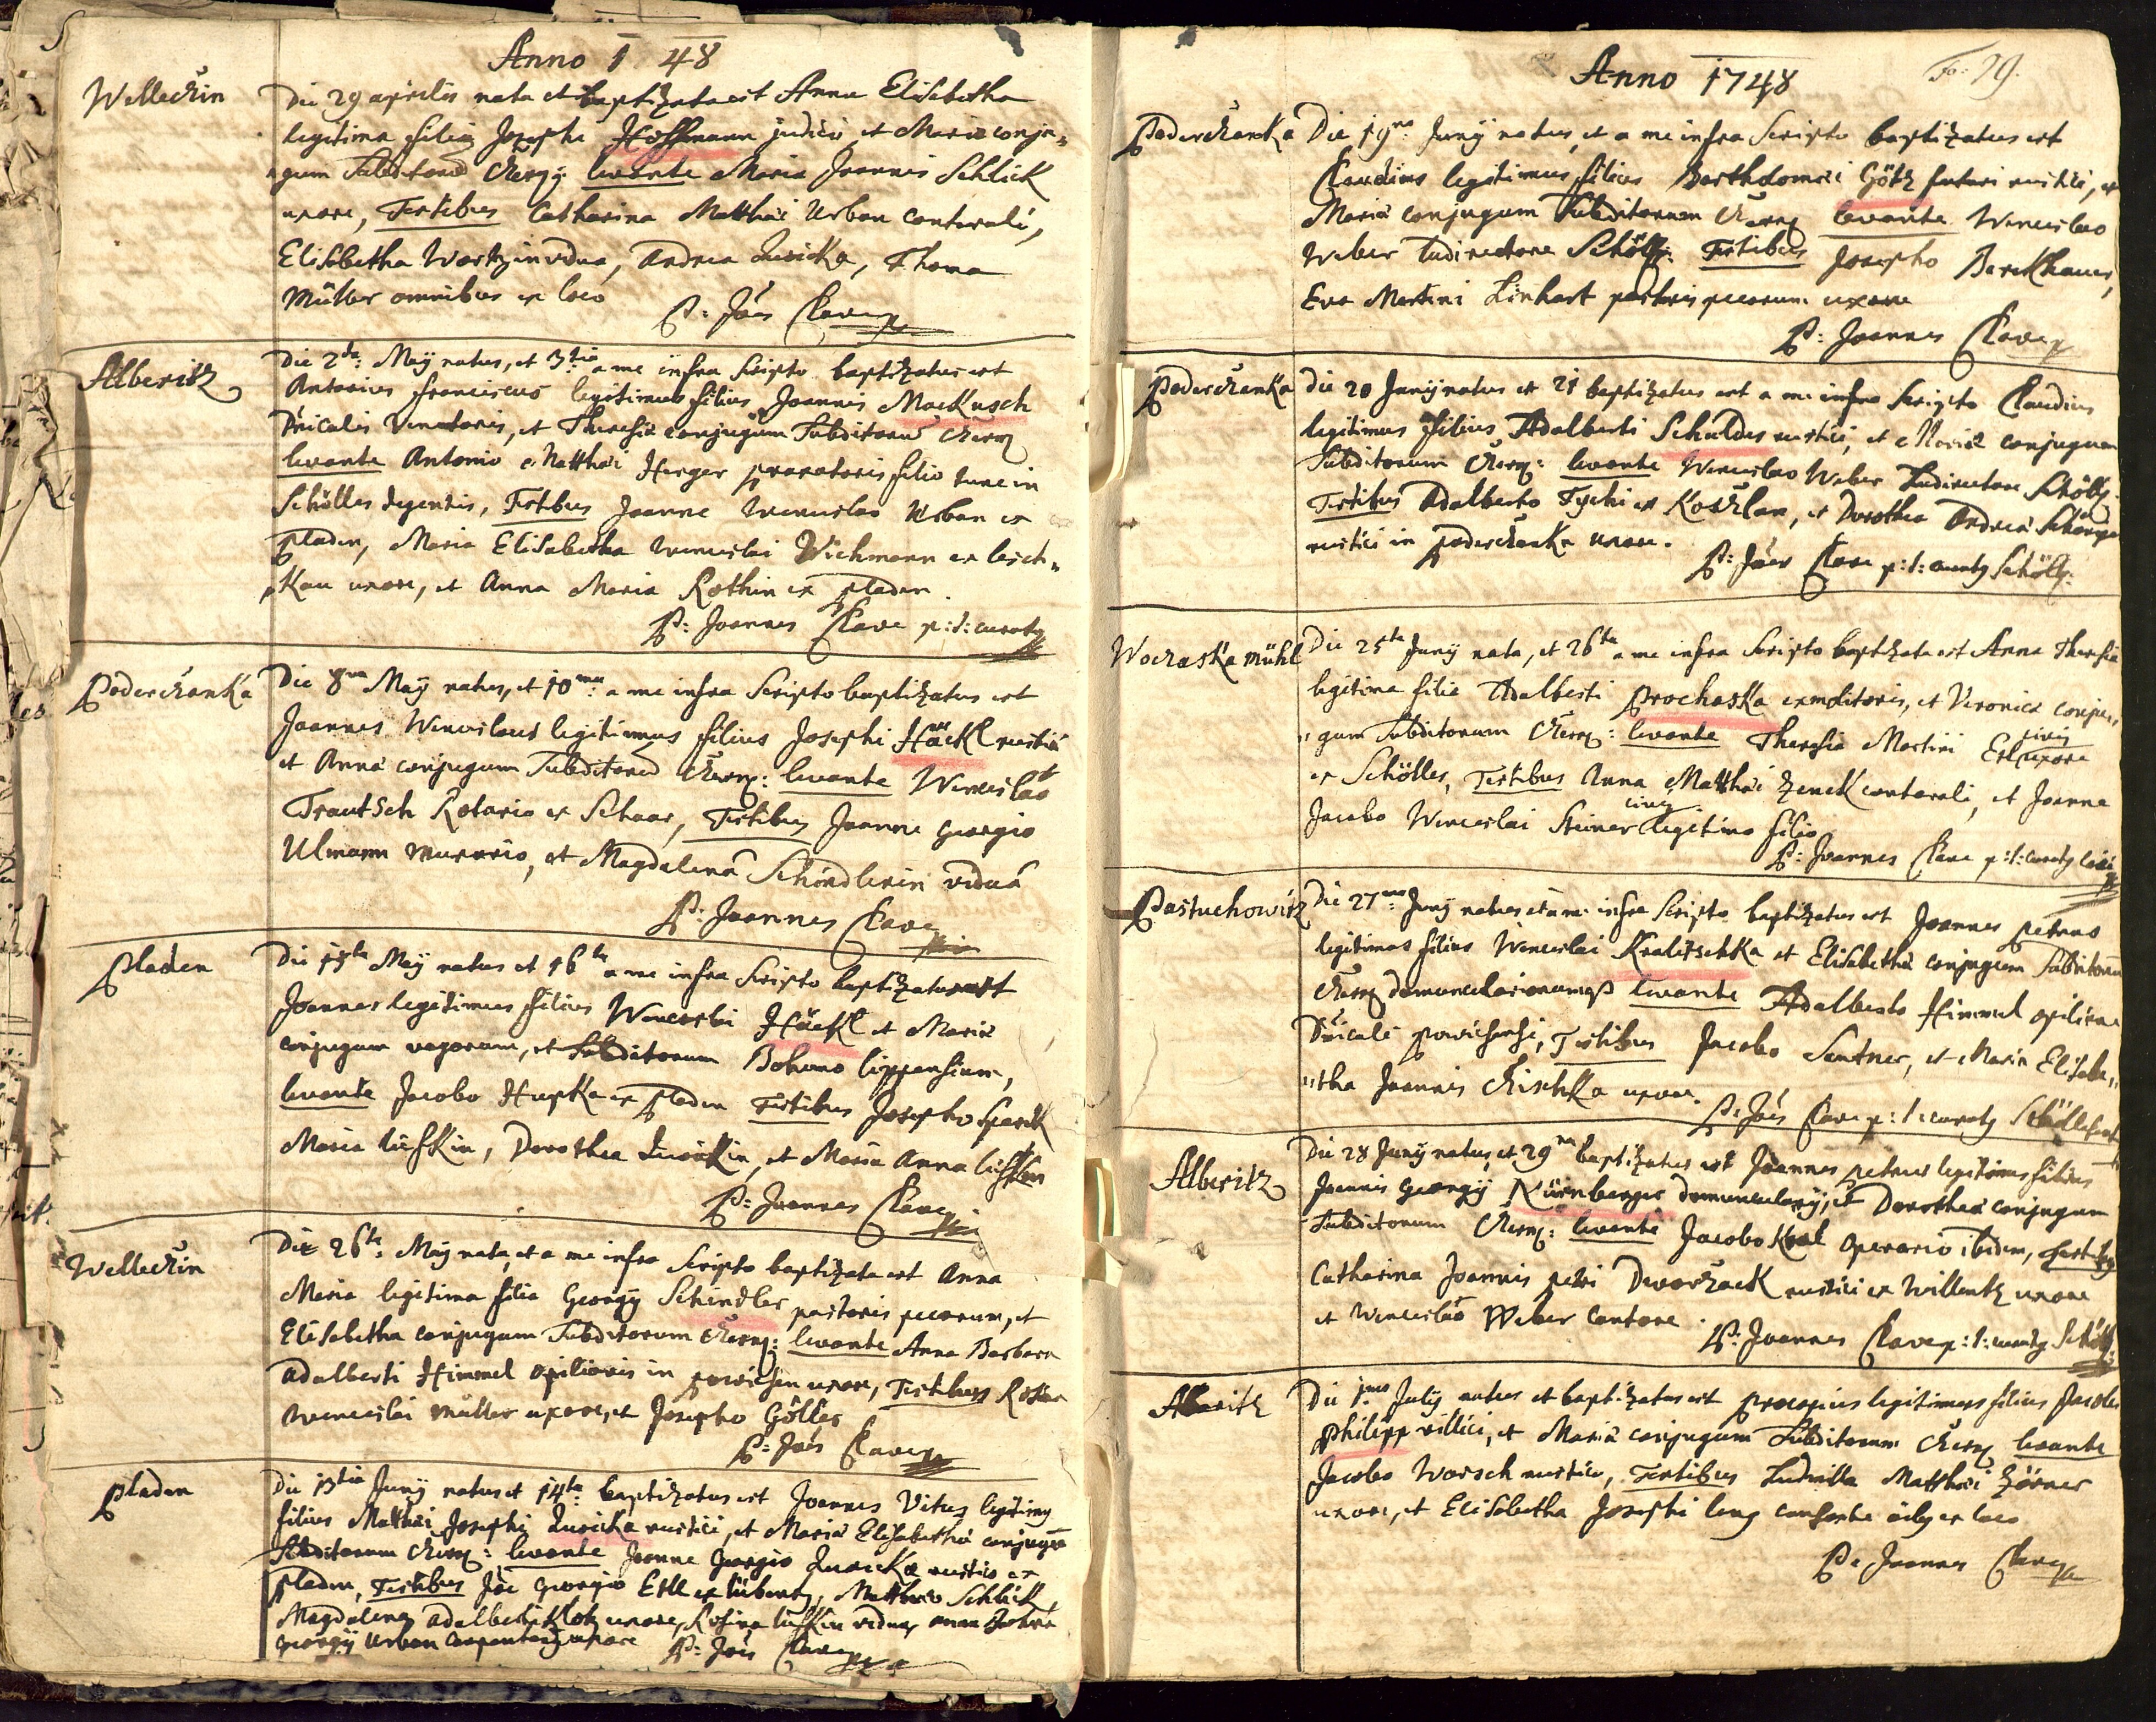 Anno 1 48
Wellechin
Die 29 aprilis nata et baptizata est Anna Elisabetha
legitima filia Josephi Hoffmann judicis et Maria conju„
„gum Subditorum levante Maria Joannis Schlick
uxore, Testibus Catharina Matthæi Urban conturali,
Elisabetha vidua, Andrea Zusicka, Thoma
Müller omnibus ex loco
P: Jões Clave
Alberitz
Die 2da: Maÿ natus, et 3tia a me infra Scripto baptizatus est
Antonius Franciscus legitimus filius Joannis Mackusch
Venatoris, et Theresiæ conjugum Subditorum
levante Antonio Matthæi Herger filio tunc in
Schölles degentis, Testibus Joanne Wenceslao Urban ex
Pladen, Maria Elisabetha Wenceslai Wichmann ex lesch„
„kau uxore, et Anna Maria Rothin ex Pladen.
P: Joannes Clave p:t: curatg
Poderczanka
Die 8va Maÿ natus, et 10ma: a me infra Scripto baptizatus est
Joannes Wenceslaus legitimus filius Josephi Häckl rustici
et Annæ conjugum Subditorum levante Wenceslao
Trautsch Rotario ex Schaar, Testibus Joanne Georgio
Ulmann murario, et Magdalenâ Schöndlerin viduâ
P: Joannes Clave
Pladen
Die 15ta Maÿ natus et 16ta a me infra Scripto baptizatus est
Joannes legitimus filius Wenceslai Häckl et Mariæ
conjugum vagorum, et Subditorum Bohemo lippensium,
levante Jacobo Hupka ex Pladen Testibus Josepho
Maria lüsskin, Dorothea et Maria Anna
P: Joannes Clave
Wellechin
Die 26ta: Maÿ nata, et a me infra Scripto baptizata est Anna
Maria legitima filia Georgÿ Schindler pastoris pecorum, et
Elisabetha conjugum Subditorum levante Anna Barbara
Adalberti Himmel opilionis in uxore, Testibus
Wenceslai Müller uxore, et Josepho Göller
P: Jões Clave
Pladen
Die 13tia Junÿ natus et 14ta baptizatus est Joannes Vitus legitimg
filius Matthæi Josephi Zusicka rustici, et Mariæ Elisabethæ conjugum
Subditorum levante Joanne Georgio Zusicka rustico ex
Pladen, Testibus Jõe Georgio Ertl ex Matthæo Schlick,
Magdalena Adalberti Klotz uxore, Rosina lüsskin vidua,
Georgÿ Urban uxore P: Jões Clave
Anno 1748
Fo: 79.
Poderczanka
Die 19na Junÿ natus, et a me infra Scripto baptizatus est
Claudius legitimus filius Bartholomæi Götz rustici, et
Mariæ conjugum Subditorum levante Wenceslao
Weber ludirectore Schöll: Testibus Josepho Berckhauer,
Eva Martini Linhart pastoris pecorum uxore
P: Joannes Clave
Poderczanka
Die 20 Junÿ natus et 21 baptizatus est a me infra Scripto Claudius
legitimus filius Adalberti Schuldes rustici, et Mariæ conjugum
Subditorum levante Wenceslao Weber Ludirectore Schöll:
Testibus Adalberto Tychi ex et Dorothea Andreæ
rustici in Poderczanka uxore.
P: Jões Clave p:t: curatg Schöll:
Woczaska mühl
Die 25ta Junÿ nata, et 26ta a me infra Scripto baptizata est Anna Theresia
legitima filia Adalberti Prochaska et Veronicæ conju„
„gum Subditorum levante Theresia Martini Ertl civis uxore
ex Schölles, Testibus Anna Matthæi Zenck conturali, et Joanne
Jacobo Wenceslai Steiner civis legitimo filio
P: Joannes Clave p:t: curatg
Pastuchowitz
Die 27ma: Junÿ natus et a me infra Scripto baptizatus est Joannes Petrus
legitimus filius Wenceslai Kralitschka et Elisabethæ conjugum Subditorum
levante Adalberto Himmel opilione
Testibus Jacobo Santner, et Maria Elisabe„
„tha Joannis uxore.
P: Jões Clave p:t: curatg
Alberitz
Die 28 Junÿ natus, et 29na baptizatus est Joannes Petrus legitimus filius
Joannis Georgÿ Nürnberger domuncularÿ, et Dorotheæ conjugum
Subditorum levante Jacobo Kral operario ibidem, Testibg
Catharina Joannis Petri Dworzack rustici ex Willentz uxore
et Wenceslao Weber Cantore.
P: Joannes Clave p:t: curatg Schöll:
Alberitz
Die 1ma Julÿ natus et baptizatus est Procopius legitimus filius Jacobi
Philipp villici, et Mariæ conjugum Subditorum levante
Jacobo Worsch rustico, Testibus Ludmilla Matthæi Zörner
uxore, et Elisabetha Josephi lang consorte ex loco
P: Joannes Clave